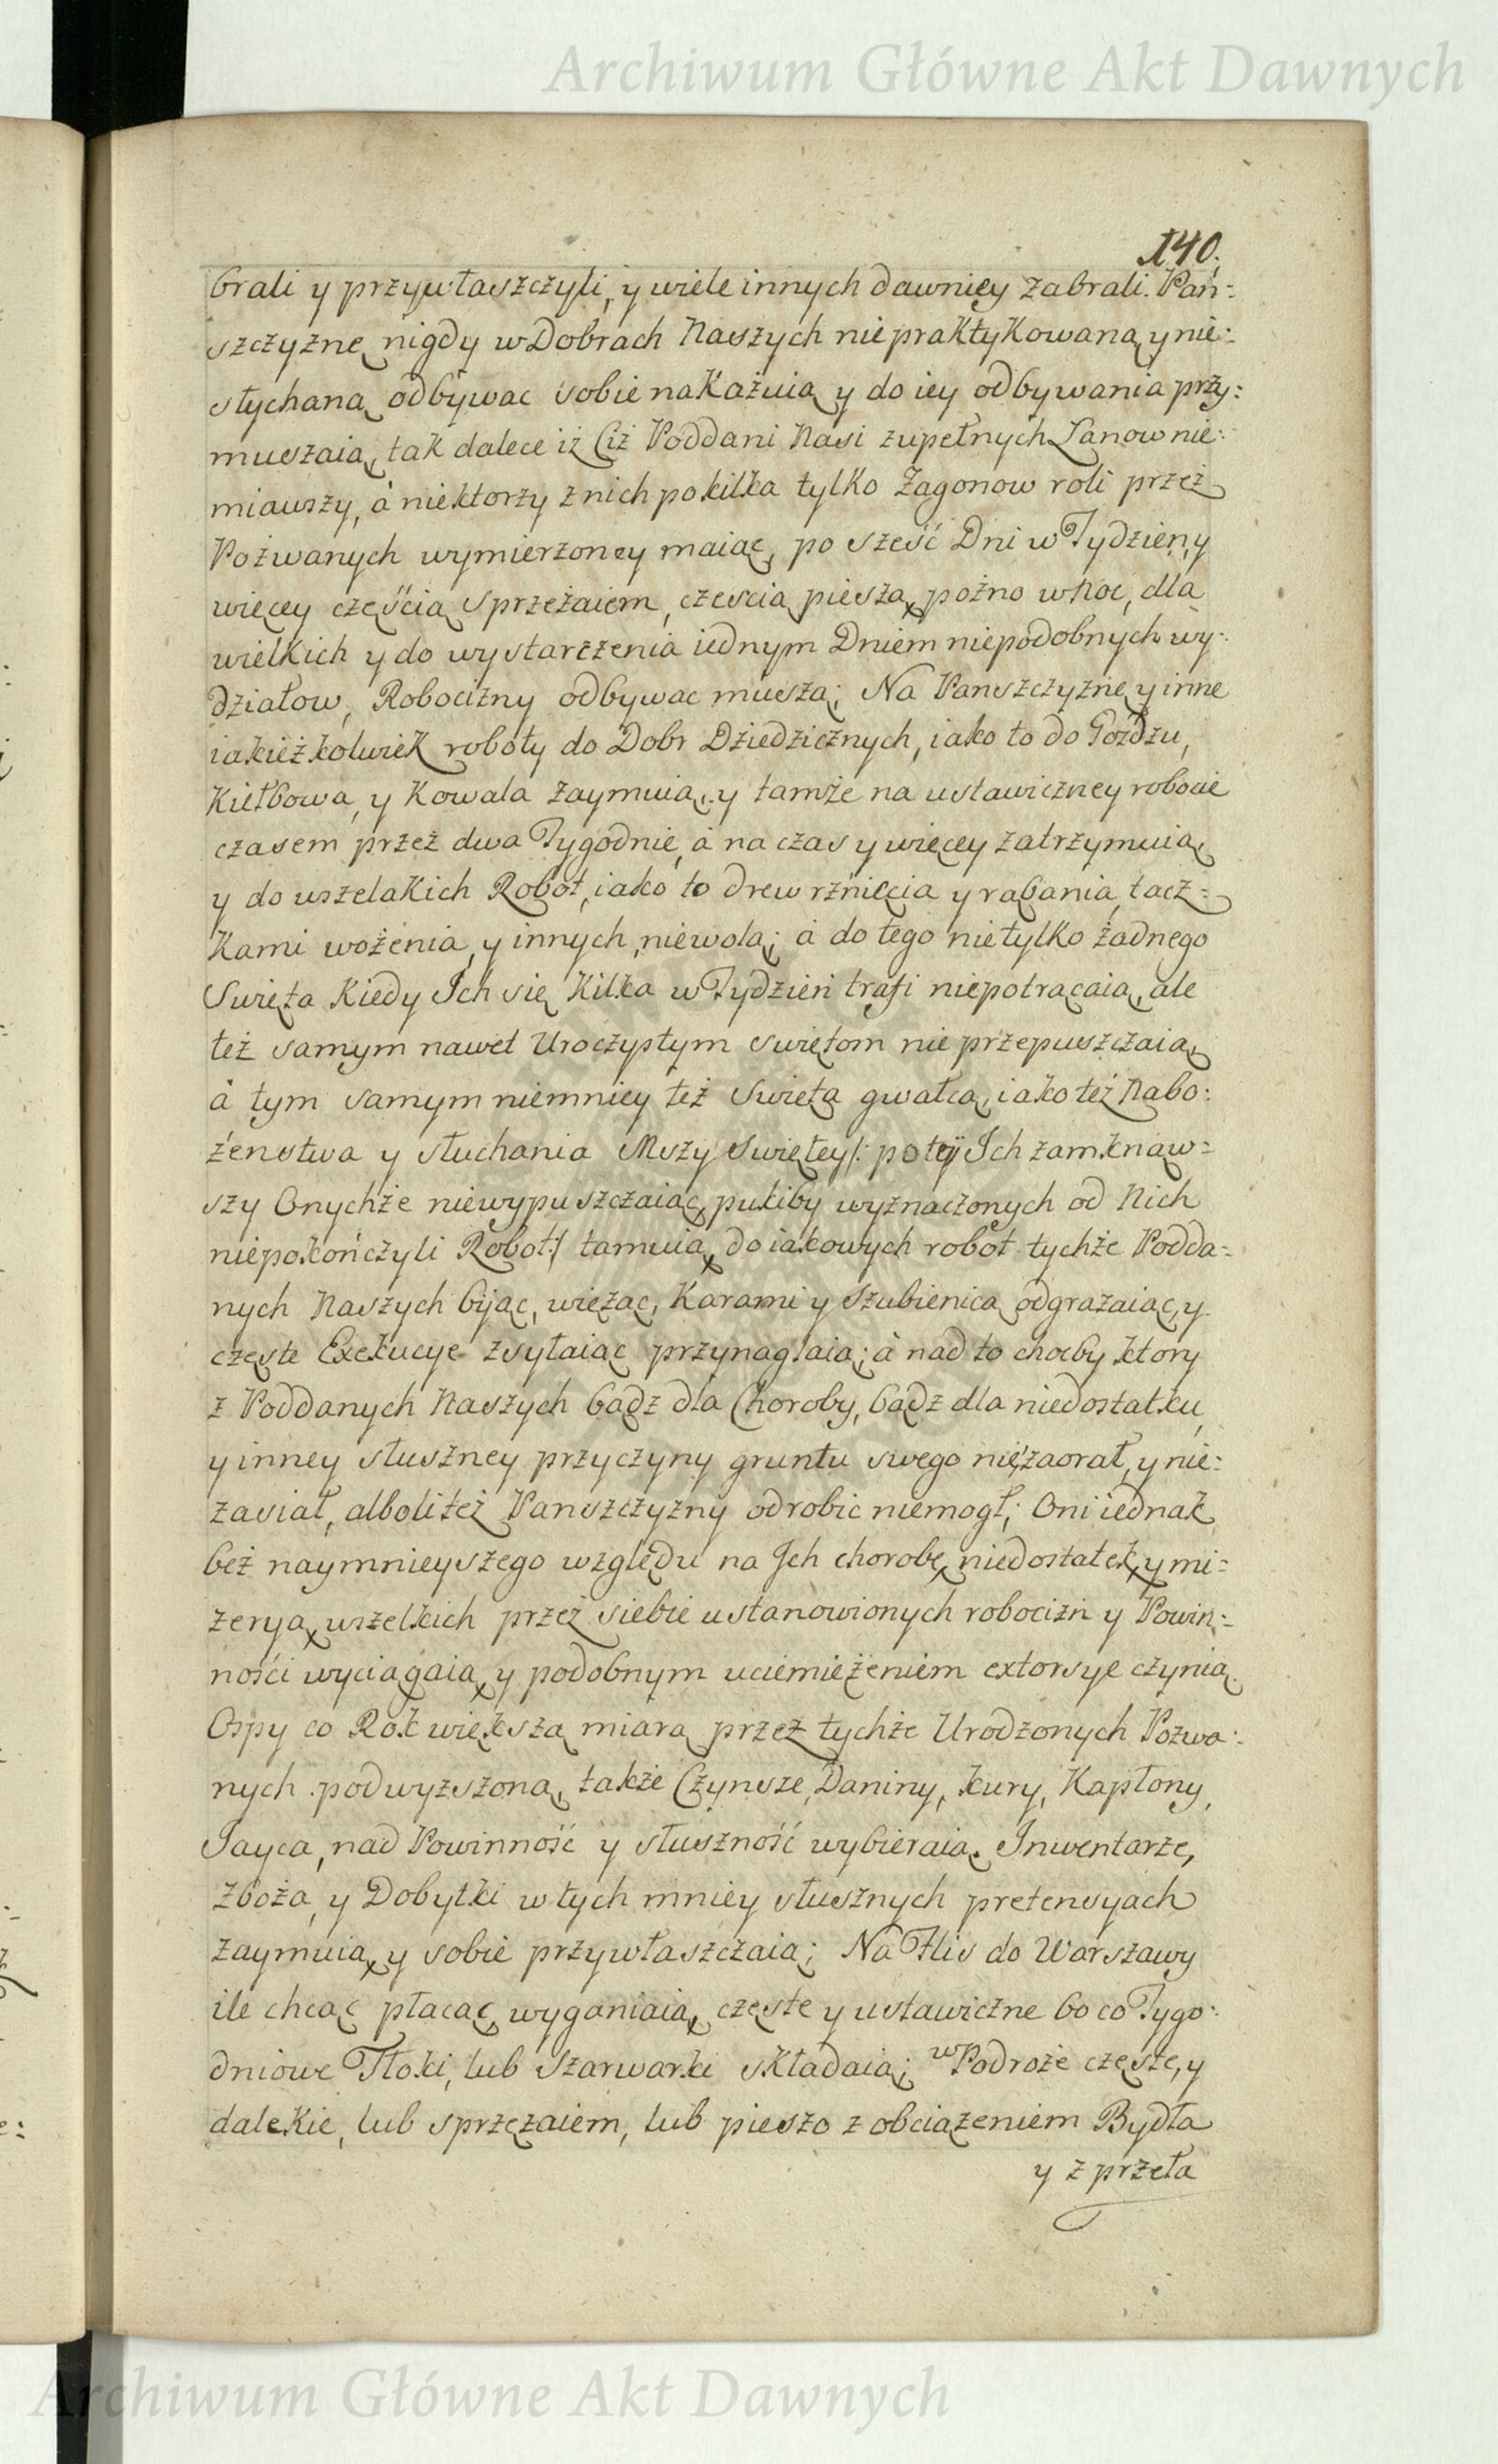 Archiwum Główne Akt Dawnych
140.
brali y przywłaszczyli, y wiele innych dawniey zabrali. Pań:
szczyznę nigdy w Dobrach Naszych niepraktykowaną y nie:
słychaną odbywac sobie nakażuią y do iey odbywania przy:
muszaią, tak dalece iż Ciż Poddani Nasi zupełnych Łanow nie:
miawszy, à niektorzy z nich po kilka tylko Zagonow roli przez
Pozwanych wymierzoney maiąc, po sześć Dni w Tydzień, y
więcey częścią sprzężaiem, częscią pieszą, pożno w Noc, dla
wielkich y do wystarczenia iednym Dniem niepodobnych wy:
działow, Robocizny odbywac muszą; Na Panszczyznę y inne
iakież kolwiek roboty do Dobr Dziedzicznych, iako to do Goździu,
Kiełbowa, y Kowala zaymuią, y tamże na ustawiczney robocie
czasem przez dwa Tygodnie, à na czas y więcey zatrzymuią,
y do wszelakich Robot, iako to drew rznięcia y rąbania, tacz:
kami wożenia, y innych, niewolą; à do tego nie tylko żadnego
Swięta kiedy Ich się kilka w Tydzień trafi niepotrącaią, ale
też samym nawet Uroczystym swiętom nie przepuszczaią,
à tym samym niemniey też Swięta gwałcą, iako też Nabo:
żenstwa y słuchania Mszy Swiętey /: poty Ich zamknąw:
szy Onychże niewypuszczaiąc, pukiby wyznaczonych od Nich
niepokończyli Robot :/ tamuią, do iakowych robot tychże Podda:
nych Naszych biiąc, więżąc, Karami y Szubienicą odgrażaiąc, y
częste Exekucye zsyłaiąc przynaglaią; à nad to chocby ktory
z Poddanych Naszych bądz dla Choroby, bądz dla niedostatku,
y inney słuszney przyczyny gruntu swego niezaorał, y nie:
zasiał, alboliteż Panszczyzny odrobic niemogł; Oni iednak
bez naymnieyszego względu na Ich chorobę, niedostatek, y mi:
zeryą, wszelkich przez siebie ustanowionych robocizn y Powin:
ności wyciągaią, y podobnym uciemiężeniem extorsye czynią.
Ospy co Rok większą miarą przez tychże Urodzonych Pozwa:
nych podwyzszoną, także Czynsze, Daniny, kury, Kapłony,
Jayca, nad Powinność y słuszność wybieraią. Inwentarze,
Zboża, y Dobytki w tych mniey słusznych pretensyach
zaymuią, y sobie przywłaszczaią; Na Flis do Warszawy
ile chcąc płacąc, wyganiaią, częste y ustawiczne bo co Tygo:
dniowe Tłoki, lub Szarwarki składaią; w Podroże częste, y
dalekie, lub sprzężaiem, lub pieszo z obciążeniem Bydła
y z przeła
Archiwum Główne Akt Dawnych